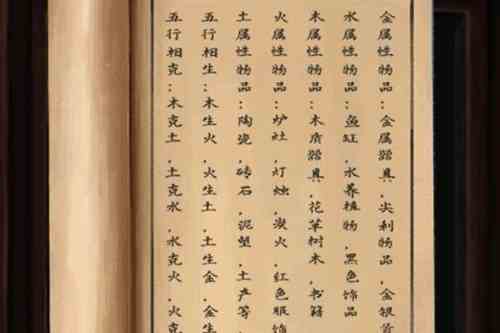 金属性物品：金属器具，尖利物品，金银首
水属性物品：鱼缸，水养植物，黑色饰品
木属性物品：木质器具，花草树木，书籍
火属性物品：炉灶，灯烛，炭火，红色服饰
土属性物品：陶瓷，砖石，泥塑，土产等，
五行相生：木生火，火生土，土生金，金生
五行相克：木克土，土克水，水克火，火